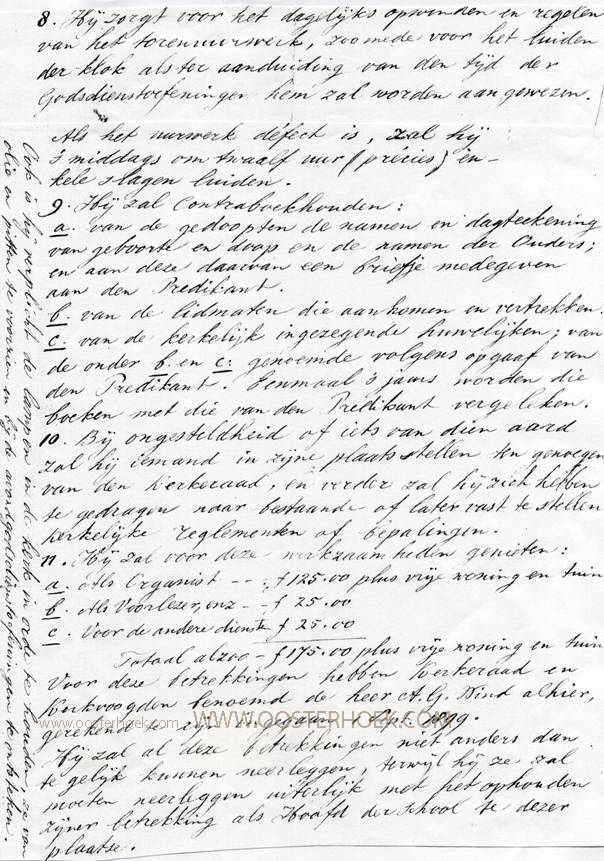 8. Hij zorgt voor het dagelijks opwinden en regelen
van het torenuurwerk, zoomede voor het luiden
der klok als ter aanduiding van den tijd der
Godsdienstoefeningen hem zal worden aangewezen.
Als het uurwerk defect is, zal hij
's middags om twaalf uur (précies) en-
kele slagen luiden.
9. Hij zal Contraboekhouden:
a. van de gedoopten de namen en dagteekening
van geboorte en doop en de namen der Ouders;
en aan deze daarvan een briefje medegeven
aan den Predikant.
b. van de lidmaten die aankomen en vertrekken.
c. van de kerkelijk ingezegende huwelijken; van
de onder b. en c. genoemde volgens opgaaf van
den Predikant. Eenmaal 's jaars worden die
boeken met die van den Predikant vergeleken.
10. Bij ongesteldheid of iets van dien aard
zal hij iemand in zijne plaats stellen ten genoegen
van den Kerkeraad, en verder zal hij zich hebben
te gedragen naar bestaande of later vast te stellen
kerkelijke reglementen of bepalingen.
11. Hij zal voor deze werkzaamheden genieten:
a. Als Organist - - - f 125.00 plus vrije woning en tuin
b. Als Voorlezer, enz - - f 25.00
c. Voor de andere dienst f 25.00
Totaal alzoo - f 175.00 plus vrije woning en tuin
Voor deze betrekkingen hebben Kerkeraad en
Kerkvoogden benoemd de heer A. G. alhier,
gerekend te zijn
www.oosterhoek.com WWW.OOSTERHOEK.COM
Hij zal al deze betrekkingen niet anders dan
te gelijk kunnen neerleggen, terwijl hij ze zal
moeten neerleggen uiterlijk met het ophouden
zijner betrekking als Hoofd der School te dezer
plaatse.
Ook is hij verplicht de lampen in de kerk in orde te houden, ze van
olie en pitten te voorzien en bij de avondgodsdienstoefeningen te ontsteken.